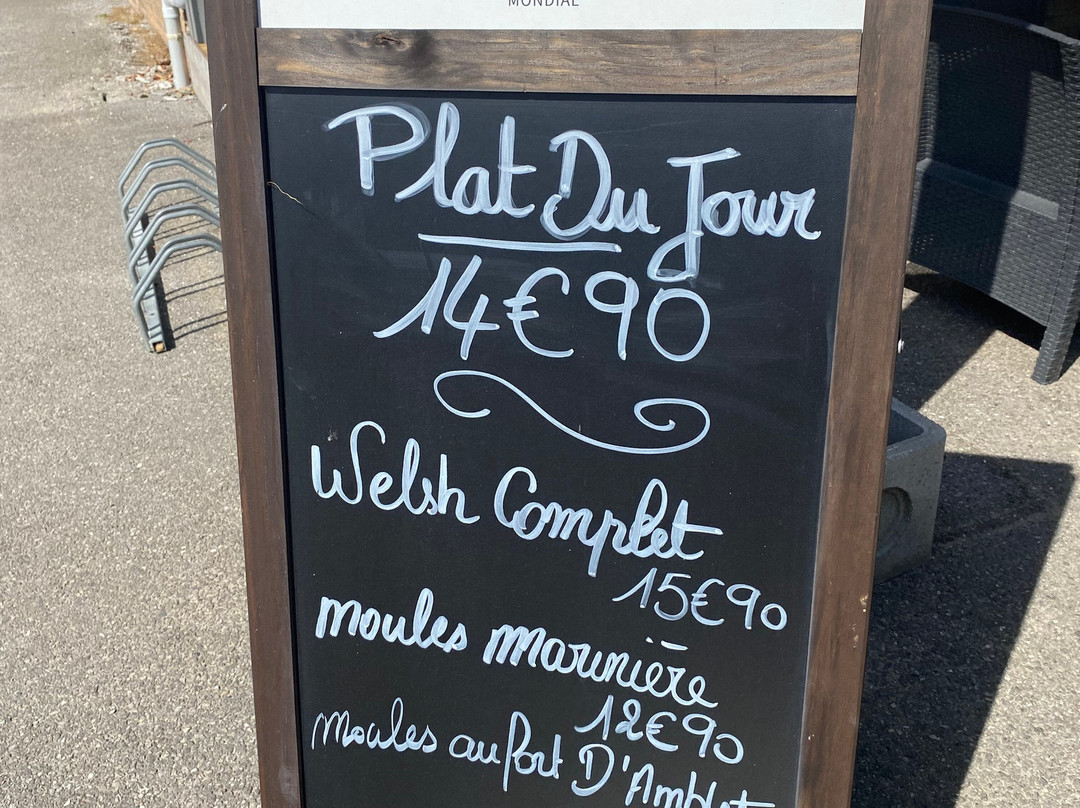 MONDIAL
Plat Du Jour
14€90
Welsh Complet
15€90
moules marinière
12€90
moules au fort D'Amblet